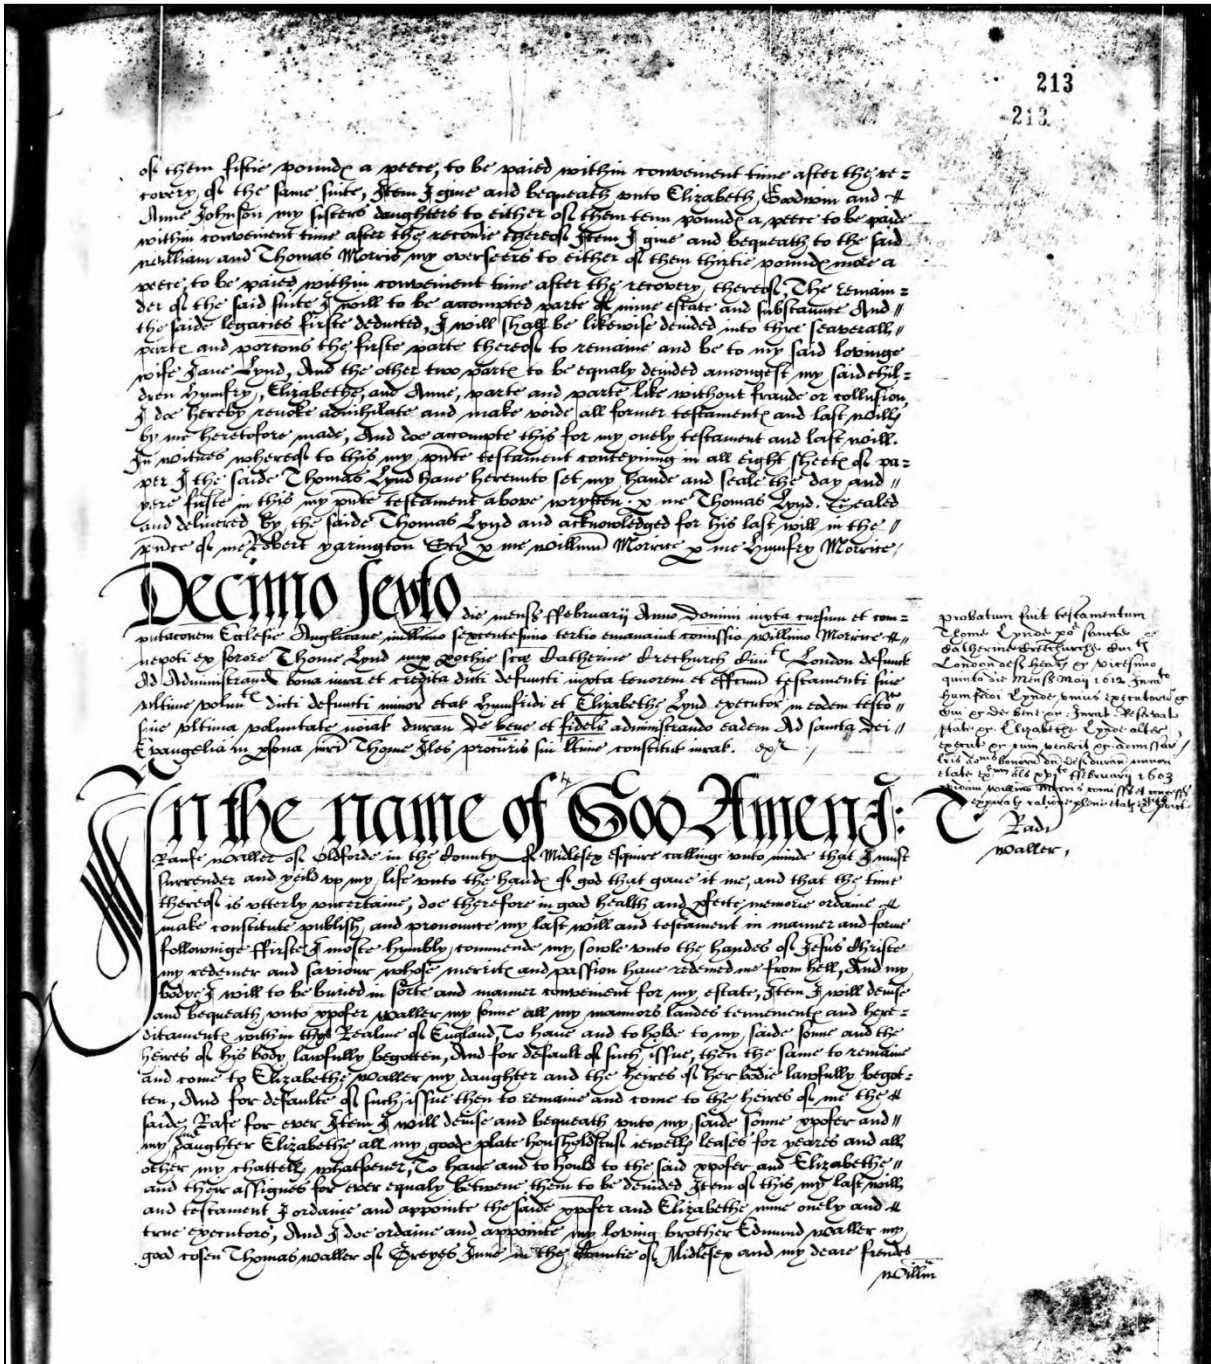 213
213
of them fiftie pound a peece, to be paied within convenient time after the re=
covery of the same suite, Item I give and bequeath unto Elizabeth Goodwin and
Anne Johnson my sisters daughters to either of them tenn pound a peece to be paide
within convenient time after the recoverie thereof Item I give and bequeath to the said
william and Thomas Morris my overseers to either of them thirtie pound more a
peece, to be paied within convenient time after the recovery thereof. The remain=
der of the said suite I will to be accompted parte of mine estate and substaunce And
the saide legacies firste deducted, I will shall be likewise devided into thre seaverall
part and porcons the firste parte thereof to remaine and be to my said lovinge
wife Jane Lynd, And the other two part to be equaly devided amongest my said chil=
dren Humfry, Elizabethe, and Anne, parte and parte like without fraude or collusion,
I doe hereby revoke adnihilate and make voide all former testament and last will
by me heretofore made, And doe accompte this for my onely testament and last will.
In witnes whereof to this my pnte testament conteyning in all eight sheet of pa=
per I the saide Thomas Lynd have hereunto set my hande and seale the day and
yere firste in this my pnte testament above wrytten. p me Thomas Lynd. Sealed
and delivered by the saide Thomas Lynd and acknowledged for his last will in the
pnce of me Robert yarington Scr p me willum Morrice p me Humfry Morrice
Decimo sexto die mens ffebruarij Anno Domini iuxta cursum et com=
putaconem Ecclesie Anglicane millimo sexcentesimo tertio emanavit comissio willimo Morrice
nepoti ex sorore Thome Lynd nup pochie sce Catherine Creechurch London defunct
Ad Administrand bona iura et credita dicti defuncti iuxta tenorem et effcum testamenti sive
ultime volun dicti defuncti minor etat Humfridi et Elizabethe Lynd executor in eodem testo
sive ultima voluntate noiat duran De bene et fidelr administrando eadem Ad sancta Dei
Evangelia in psona mri Thome Iles procuris sui ltime constitut iurat. exr
probatum fuit testamentum
Thome Lynde sancte
Catherine
London vicesimo
quinto die Mensis Maij 1612
Humfridi Lynde unius executoru
Iurat. Reservat
Elizabethe Lynde alter
execut cum venerit
bonorum
etate ffebruarij 1603
In the name of God Amen I:
Raufe waller of Oldforde in the County of Midlesex Esquire callinge unto minde that I must
surrender and yeild up my life unto the hand of god that gave it me, and that the time
thereof is utterly uncertaine, doe therefore in good health and pfecte memorie ordaine
make constitute publish and pronounce my last will and testament in manner and forme
followinge ffirste I moste humbly commende my sowle unto the handes of Jesus Christe
my redemer and saviour whose merrit and passion have redemed me from hell, And my
bodye I will to be buried in sorte and manner convenient for my estate, Item I will devise
and bequeath unto xpofer waller my sonne all my mannors landes tennement and here=
ditament within thys Realme of England To have and to holde to my saide sonne and the
heires of his body lawfully begotten, And for default of such issue, then the same to remaine
and come to Elizabethe waller my daughter and the heires of her bodie lawfully begot=
ten, And for defaulte of such issue then to remaine and come to the heires of me the
saide Rafe for ever Item I will devise and bequeath unto my saide sonne xpofer and
my daughter Elizabethe all my good plate housholdstuf iewell leases for yeares and all
other my chattell whatsoever, To have and to hould to the said xpofer and Elizabethe
and their assignes for ever equaly betwene them to be devided Item of this my last will
and testament I ordaine and appointe the saide xpofer and Elizabethe mine onely and
true executors, And I doe ordaine and appointe my loving brother Edmund waller my
good cosen Thomas waller of Greyes Inne in the Countie of Midlesex and my deare frendes
willm
T
Radi
waller,